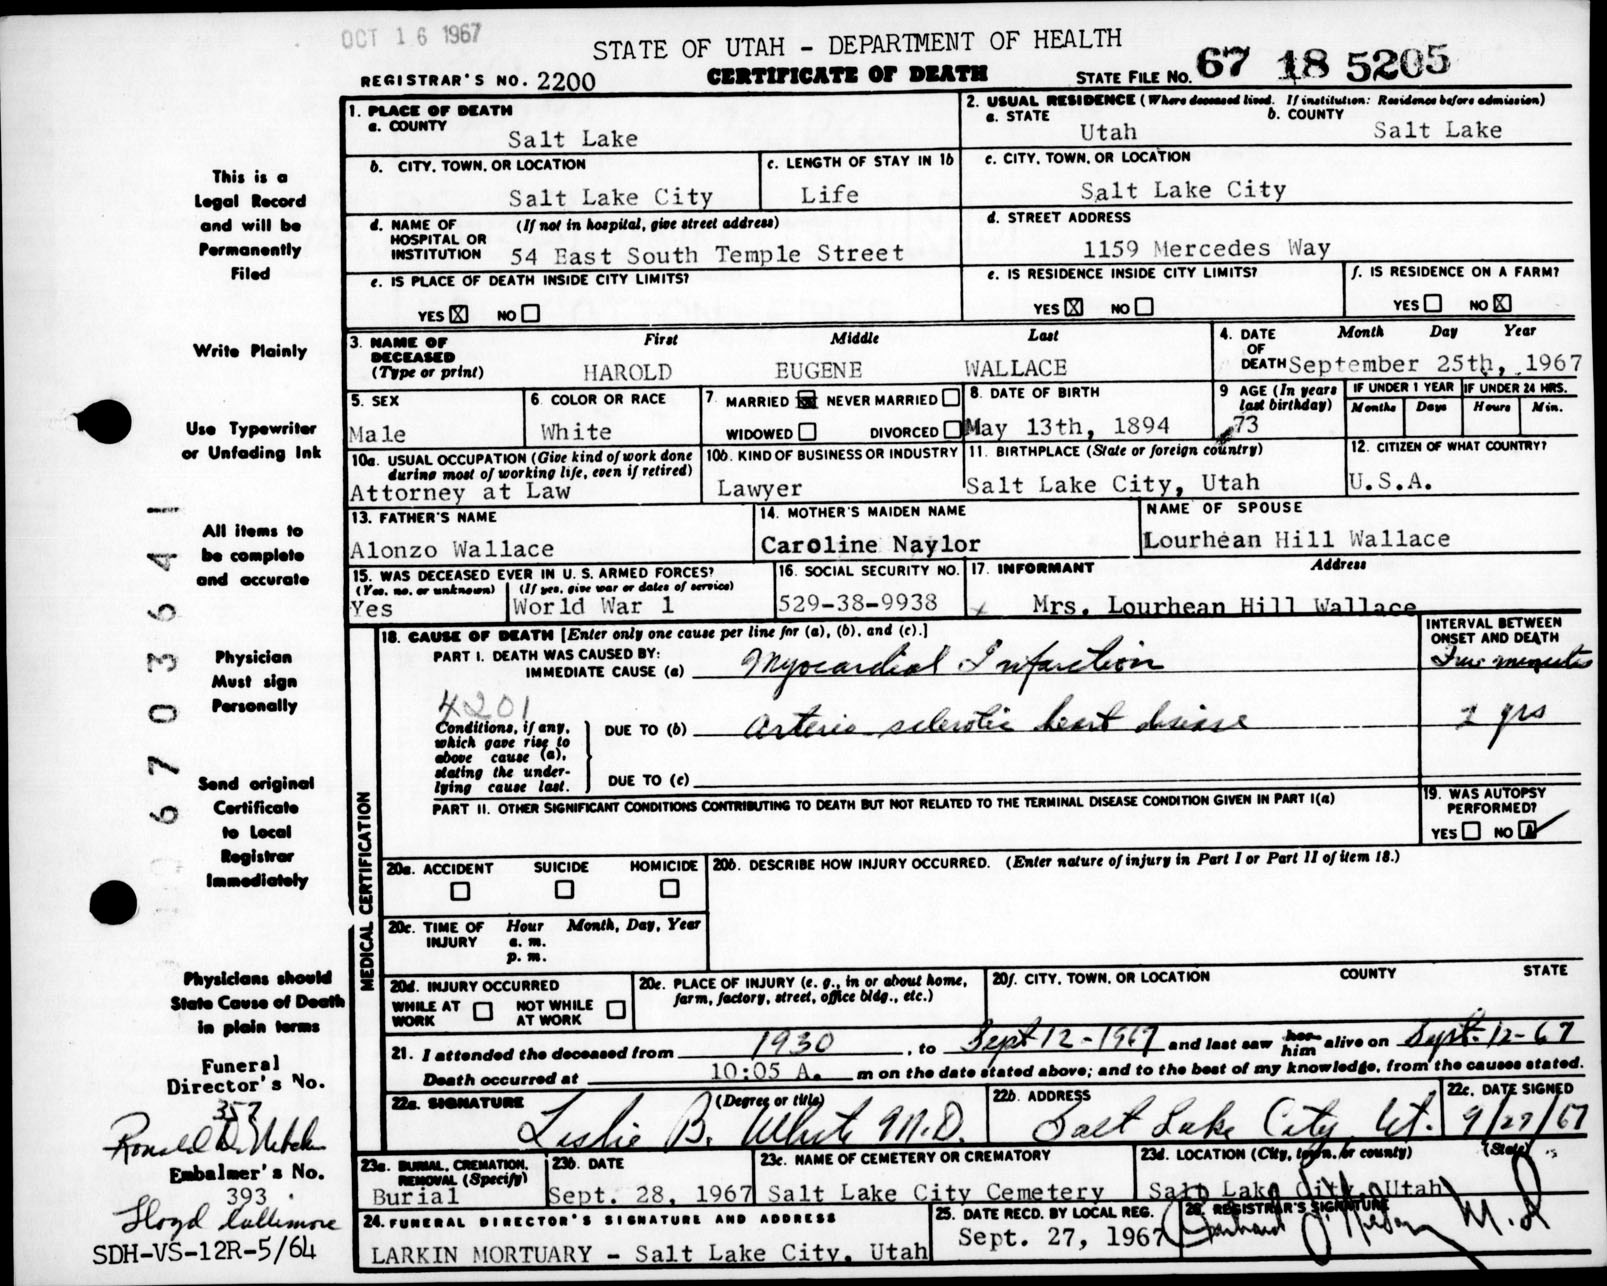 OCT 16 1967
STATE OF UTAH - DEPARTMENT OF HEALTH
REGISTRAR'S NO. 2200 CERTIFICATE OF DEATH STATE FILE NO. 67 18 5205
1. PLACE OF DEATH
a. COUNTY
Salt Lake
2. USUAL RESIDENCE (Where deceased lived. If institution: Residence before admission)
a. STATE b. COUNTY
Utah Salt Lake
b. CITY, TOWN, OR LOCATION
Salt Lake City
c. LENGTH OF STAY IN 1b
Life
c. CITY, TOWN, OR LOCATION
Salt Lake City
d. NAME OF (If not in hospital, give street address)
HOSPITAL OR
INSTITUTION 54 East South Temple Street
d. STREET ADDRESS
1159 Mercedes Way
e. IS PLACE OF DEATH INSIDE CITY LIMITS?
YES X NO
e. IS RESIDENCE INSIDE CITY LIMITS?
YES X NO
f. IS RESIDENCE ON A FARM?
YES NO X
3. NAME OF First Middle Last
DECEASED
(Type or print) HAROLD EUGENE WALLACE
4. DATE Month Day Year
OF
DEATH September 25th, 1967
5. SEX
Male
6. COLOR OR RACE
White
7. MARRIED X NEVER MARRIED
WIDOWED DIVORCED
8. DATE OF BIRTH
May 13th, 1894
9 AGE (In years
last birthday)
73
IF UNDER 1 YEAR IF UNDER 24 HRS.
Months Days Hours Min.
10a. USUAL OCCUPATION (Give kind of work done
during most of working life, even if retired)
Attorney at Law
10b. KIND OF BUSINESS OR INDUSTRY
Lawyer
11. BIRTHPLACE (State or foreign country)
Salt Lake City, Utah
12. CITIZEN OF WHAT COUNTRY?
U.S.A.
13. FATHER'S NAME
Alonzo Wallace
14. MOTHER'S MAIDEN NAME
Caroline Naylor
NAME OF SPOUSE
Lourhean Hill Wallace
15. WAS DECEASED EVER IN U. S. ARMED FORCES?
(Yes, no, or unknown) (If yes, give war or dates of service)
Yes World War 1
16. SOCIAL SECURITY NO.
529-38-9938
17. INFORMANT Address
Mrs. Lourhean Hill Wallace
MEDICAL CERTIFICATION
18. CAUSE OF DEATH [Enter only one cause per line for (a), (b), and (c).]
INTERVAL BETWEEN
ONSET AND DEATH
PART I. DEATH WAS CAUSED BY:
IMMEDIATE CAUSE (a) Myocardial Infarction
minutes
4201
Conditions, if any,
which gave rise to
above cause (a),
stating the under-
lying cause last.
DUE TO (b) Arterio sclerotic heart disease yrs
DUE TO (c)
PART II. OTHER SIGNIFICANT CONDITIONS CONTRIBUTING TO DEATH BUT NOT RELATED TO THE TERMINAL DISEASE CONDITION GIVEN IN PART I(a)
19. WAS AUTOPSY
PERFORMED?
YES NO
20a. ACCIDENT SUICIDE HOMICIDE
20b. DESCRIBE HOW INJURY OCCURRED. (Enter nature of injury in Part I or Part II of item 18.)
20c. TIME OF Hour Month, Day, Year
INJURY a. m.
p. m.
20d. INJURY OCCURRED
WHILE AT NOT WHILE
WORK AT WORK
20e. PLACE OF INJURY (e. g., in or about home,
farm, factory, street, office bldg., etc.)
20f. CITY, TOWN, OR LOCATION COUNTY STATE
21. I attended the deceased from 1930, to Sept 12-1967 and last saw her him alive on Sept. 12-67
Death occurred at 10:05 A. m on the date stated above; and to the best of my knowledge, from the causes stated.
22a. SIGNATURE (Degree or title)
Leslie B. White M.D.
22b. ADDRESS
Salt Lake City Ut.
22c. DATE SIGNED
9/27/67
23a. BURIAL, CREMATION,
REMOVAL (Specify)
Burial
23b. DATE
Sept. 28, 1967
23c. NAME OF CEMETERY OR CREMATORY
Salt Lake City Cemetery
23d. LOCATION (City, town, or county) (State)
Salt Lake City, Utah
24. FUNERAL DIRECTOR'S SIGNATURE AND ADDRESS
LARKIN MORTUARY - Salt Lake City, Utah
25. DATE RECD. BY LOCAL REG.
Sept. 27, 1967
26. REGISTRAR'S SIGNATURE
M.D.
This is a
Legal Record
and will be
Permanently
Filed
Write Plainly
Use Typewriter
or Unfading Ink
All items to
be complete
and accurate
Physician
Must sign
Personally
Send original
Certificate
to Local
Registrar
Immediately
Physicians should
State Cause of Death
in plain terms
Funeral
Director's No.
357
Ronald
Embalmer's No.
393
Lloyd Cullimore
SDH-VS-12R-5/64